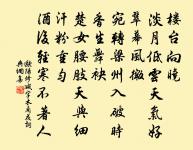 樓台向曉
淡月低雲天氣好
翠幕風微
宛轉梁州入破時
香生舞袂
楚女腰肢天與細
汗粉重勻
酒後輕寒不著人
歐陽修減字木蘭花詞